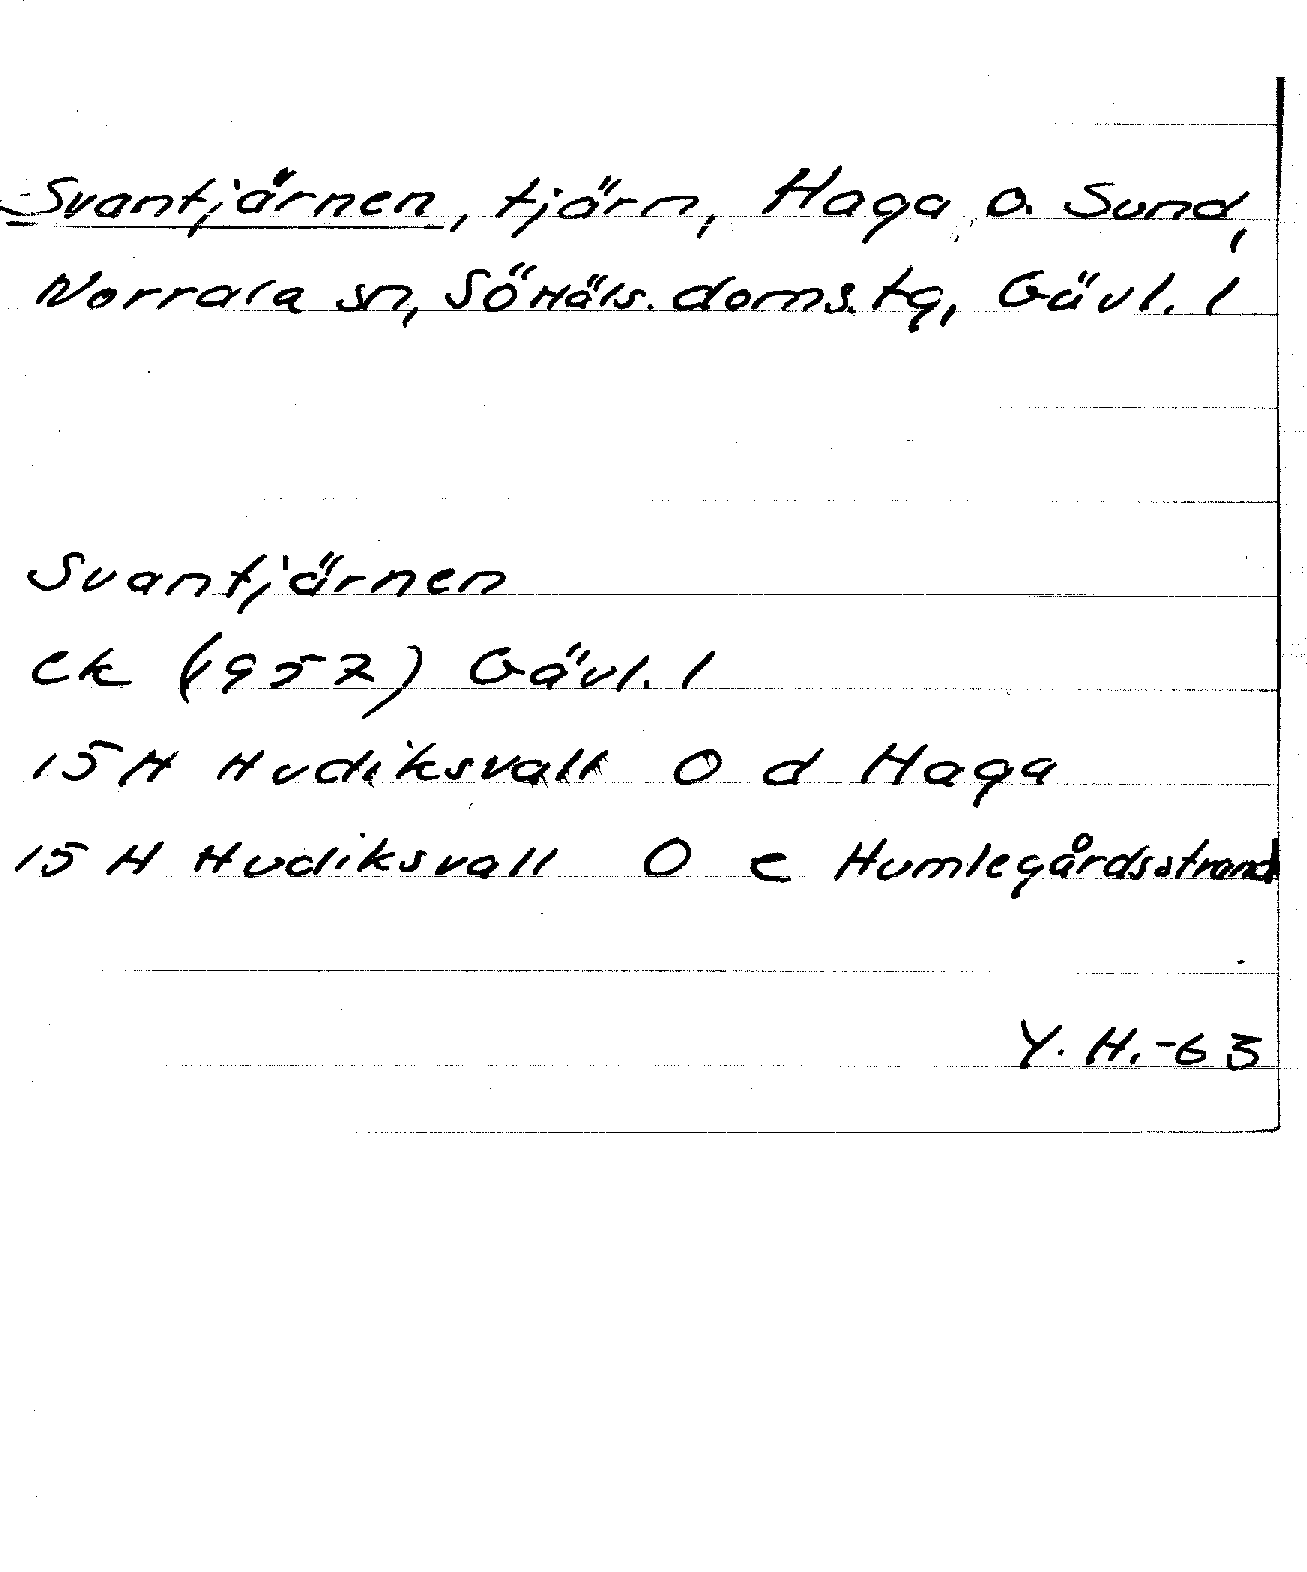 Svantjärnen, tjärn, Haga o. Sund,
Norrala sn, SöHäls. doms.tg, Gävl. l
Svantjärnen
Ek (1957) Gävl. l
15 H Hudiksvall O d Haga
15 H Hudiksvall O e Humlegårdsstrand
Y. H.-63